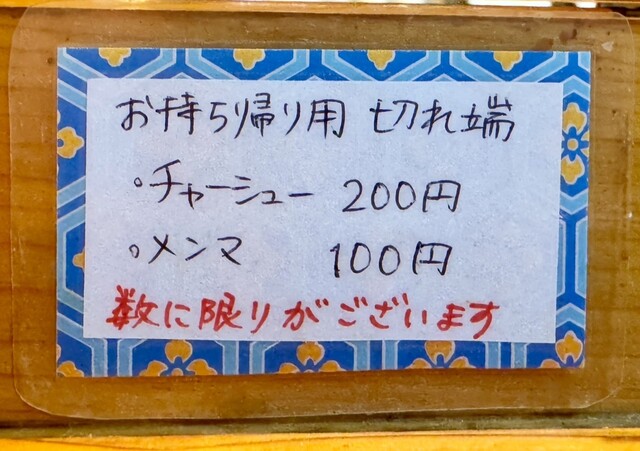 お持ち帰り用 切れ端
。チャーシュー 200円
。メンマ 100円
数に限りがございます